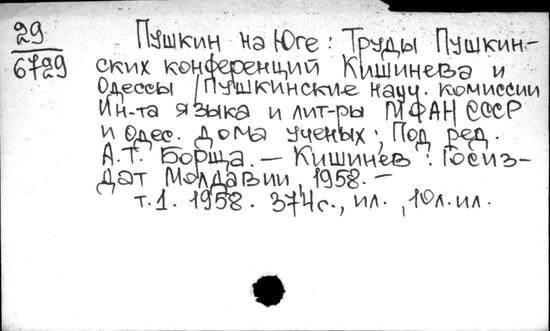 29
6729
Пушкин на Юге : Труды Пушкин-
ских конференций Кишинева и
Одессы / Пушкинские науч. комиссии
Ин-та языка и лит-ры МФАН СССР
и Одес. дома ученых ; Под ред.
А.Т. Борща. — Кишинев : Госиз-
дат Молдавии, 1958. —
т.1. 1958. 374с., ил., 10л.ил.